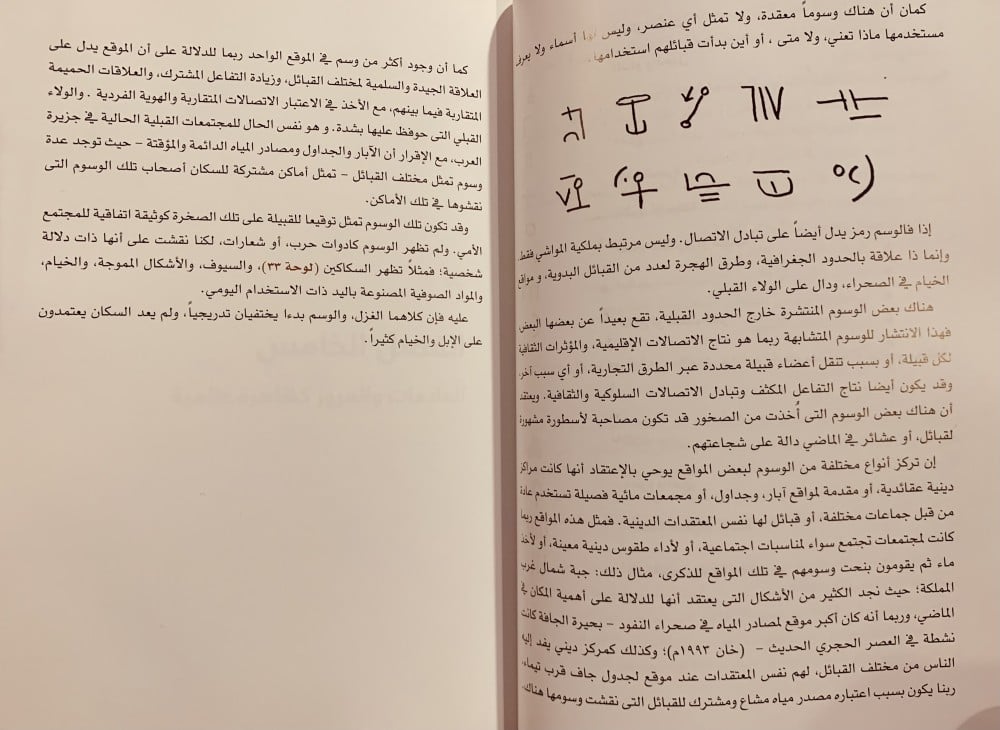 كمان أن هناك وسوماً معقدة، ولا تمثل أي عنصر، وليس لها أسماء ولا يعرف
مستخدمها ماذا تعني، ولا متى ، أو أين بدأت قبائلهم استخدامها.
إذا فالوسم رمز يدل أيضاً على تبادل الاتصال. وليس مرتبط بملكية المواشي فقط.
وإنما ذا علاقة بالحدود الجغرافية، وطرق الهجرة لعدد من القبائل البدوية، و مواقع
الخيام في الصحراء، ودال على الولاء القبلي.
هناك بعض الوسوم المنتشرة خارج الحدود القبلية، تقع بعيداً عن بعضها البعض.
فهذا الانتشار للوسوم المتشابهة ربما هو نتاج الاتصالات الإقليمية، والمؤثرات الثقافية
لكل قبيلة، أو بسبب تنقل أعضاء قبيلة محددة عبر الطرق التجارية، أو أي سبب أخر.
وقد يكون أيضا نتاج التفاعل المكثف وتبادل الاتصالات السلوكية والثقافية. ويعتقد
أن هناك بعض الوسوم التى أُخذت من الصخور قد تكون مصاحبة لأسطورة مشهورة
لقبائل، أو عشائر في الماضي دالة على شجاعتهم.
إن تركز أنواع مختلفة من الوسوم لبعض المواقع يوحي بالإعتقاد أنها كانت مراكز
دينية عقائدية، أو مقدمة لمواقع آبار، وجداول، أو مجمعات مائية فصيلة تستخدم عادة
من قبل جماعات مختلفة، أو قبائل لها نفس المعتقدات الدينية. فمثل هذه المواقع ربما
كانت لمجتمعات تجتمع سواء لمناسبات اجتماعية، أو لأداء طقوس دينية معينة، أو لأخذ
ماء ثم يقومون بنحت وسومهم في تلك المواقع للذكرى، مثال ذلك: جبة شمال غرب
المملكة؛ حيث نجد الكثير من الأشكال التى يعتقد أنها للدلالة على أهمية المكان في
الماضي، وربما أنه كان أكبر موقع لمصادر المياه في صحراء النفود - بحيرة الجافة كانت
نشطة في العصر الحجري الحديث - (خان ١٩٩٣م)؛ وكذلك كمركز ديني يفد إليه
الناس من مختلف القبائل، لهم نفس المعتقدات عند موقع لجدول جاف قرب تيماء،
ربنا يكون بسبب اعتباره مصدر مياه مشاع ومشترك للقبائل التى نقشت وسومها هناك.
كما أن وجود أكثر من وسم في الموقع الواحد ربما للدلالة على أن الموقع يدل على
العلاقة الجيدة والسلمية لمختلف القبائل، وزيادة التفاعل المشترك، والعلاقات الحميمة
المتقاربة فيما بينهم، مع الأخذ في الاعتبار الاتصالات المتقاربة والهوية الفردية . والولاء
القبلي التى حوفظ عليها بشدة. و هو نفس الحال للمجتمعات القبلية الحالية في جزيرة
العرب، مع الإقرار أن الآبار والجداول ومصادر المياه الدائمة والمؤقتة - حيث توجد عدة
وسوم تمثل مختلف القبائل - تمثل أماكن مشتركة للسكان أصحاب تلك الوسوم التى
نقشوها في تلك الأماكن.
وقد تكون تلك الوسوم تمثل توقيعا للقبيلة على تلك الصخرة كوثيقة اتفاقية للمجتمع
الأمي. ولم تظهر الوسوم كادوات حرب، أو شعارات، لكنا نقشت على أنها ذات دلالة
شخصية؛ فمثلاً تظهر السكاكين (لوحة ٣٣)، والسيوف، والأشكال المموجة، والخيام،
والمواد الصوفية المصنوعة باليد ذات الاستخدام اليومي.
عليه فإن كلاهما الغزل، والوسم بدءا يختفيان تدريجياً، ولم يعد السكان يعتمدون
على الإبل والخيام كثيراً.